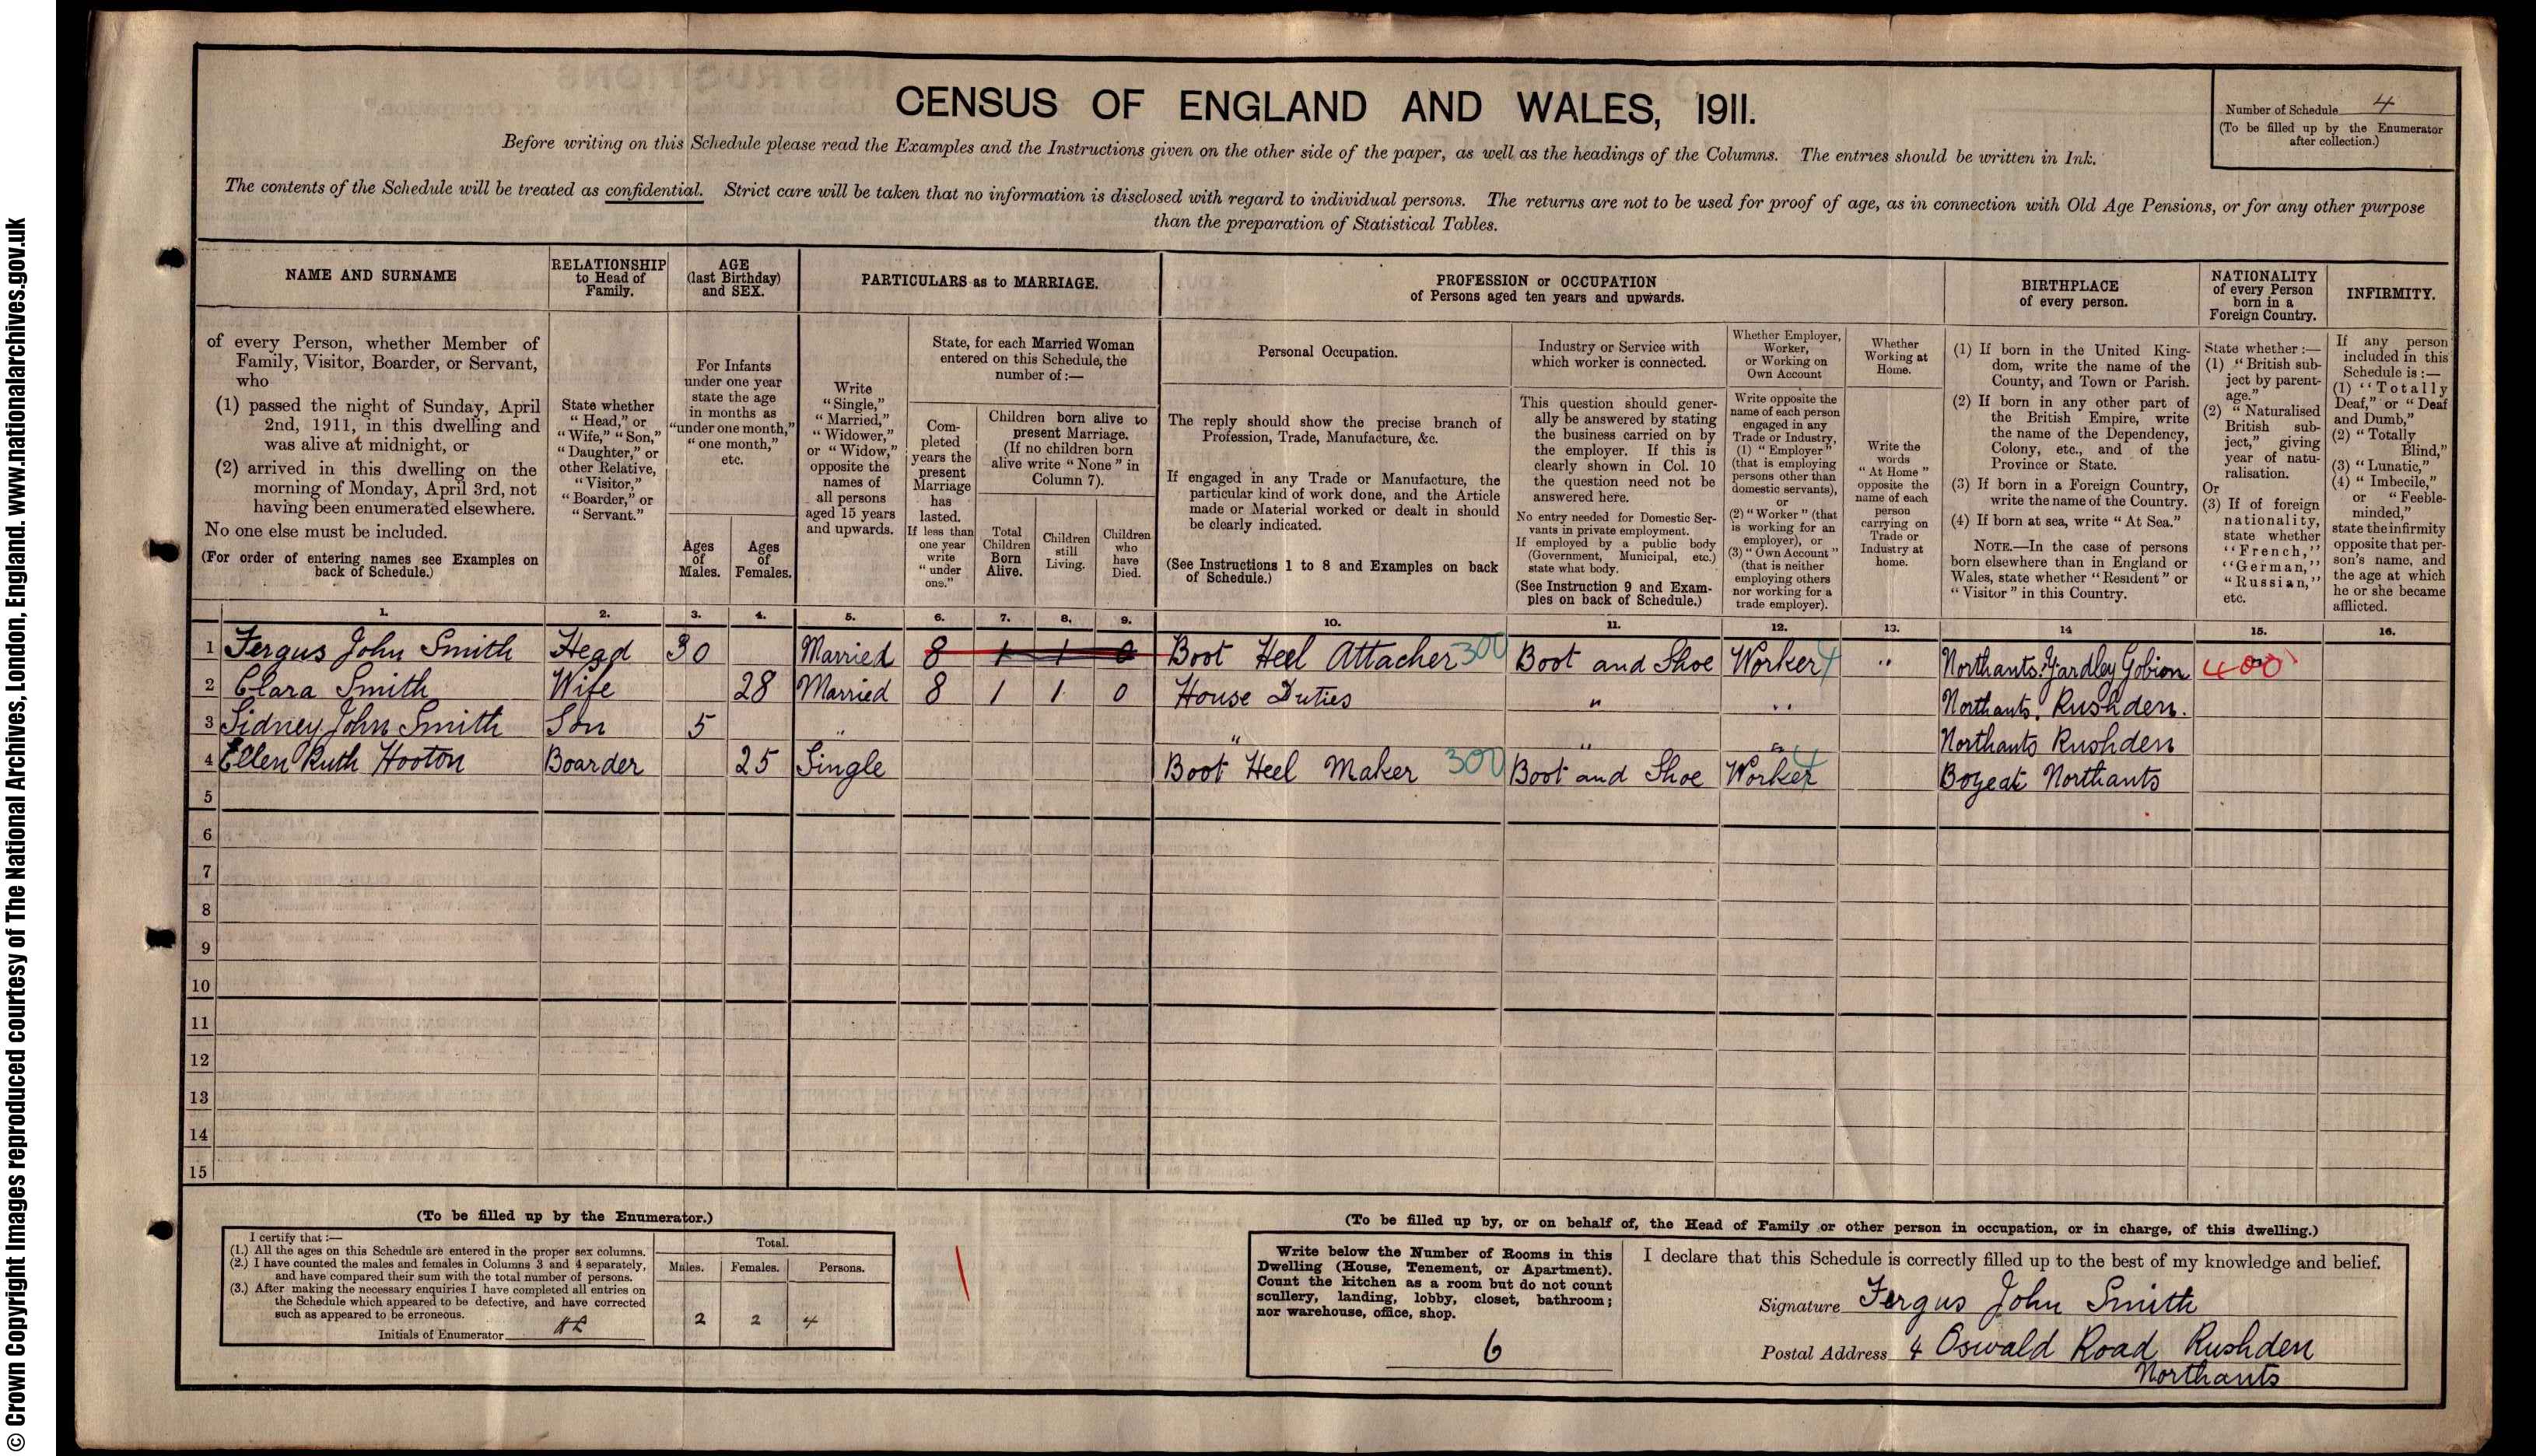 CENSUS OF ENGLAND AND WALES, 1911.
Number of Schedule 4
(To be filled up by the Enumerator
after collection.)
Before writing on this Schedule please read the Examples and the Instructions given on the other side of the paper, as well as the headings of the Columns. The entries should be written in Ink.
The contents of the Schedule will be treated as confidential. Strict care will be taken that no information is disclosed with regard to individual persons. The returns are not to be used for proof of age, as in connection with Old Age Pensions, or for any other purpose
than the preparation of Statistical Tables.
NAME AND SURNAME
of every Person, whether Member of
Family, Visitor, Boarder, or Servant,
who
(1) passed the night of Sunday, April
2nd, 1911, in this dwelling and
was alive at midnight, or
(2) arrived in this dwelling on the
morning of Monday, April 3rd, not
having been enumerated elsewhere.
No one else must be included.
(For order of entering names see Examples on
back of Schedule.)
RELATIONSHIP
to Head of
Family.
State whether
"Head," or
"Wife," "Son,"
"Daughter," or
other Relative,
"Visitor,"
"Boarder," or
"Servant."
AGE
(last Birthday)
and SEX.
For Infants
under one year
state the age
in months as
"under one month,"
"one month,"
etc.
Ages
of
Males.
Ages
of
Females.
PARTICULARS as to MARRIAGE.
Write
"Single,"
"Married,"
"Widower,"
or "Widow,"
opposite the
names of
all persons
aged 15 years
and upwards.
State, for each Married Woman
entered on this Schedule, the
number of :—
Com-
pleted
years the
present
Marriage
has
lasted.
If less than
one year
write
"under
one."
Children born alive to
present Marriage.
(If no children born
alive write "None" in
Column 7).
Total
Children
Born
Alive.
Children
still
Living.
Children
who
have
Died.
PROFESSION or OCCUPATION
of Persons aged ten years and upwards.
Personal Occupation.
The reply should show the precise branch of
Profession, Trade, Manufacture, &c.
If engaged in any Trade or Manufacture, the
particular kind of work done, and the Article
made or Material worked or dealt in should
be clearly indicated.
(See Instructions 1 to 8 and Examples on back
of Schedule.)
Industry or Service with
which worker is connected.
This question should gener-
ally be answered by stating
the business carried on by
the employer. If this is
clearly shown in Col. 10
the question need not be
answered here.
No entry needed for Domestic Ser-
vants in private employment.
If employed by a public body
(Government, Municipal, etc.)
state what body.
(See Instruction 9 and Exam-
ples on back of Schedule.)
Whether Employer,
Worker,
or Working on
Own Account
Write opposite the
name of each person
engaged in any
Trade or Industry,
(1) "Employer"
(that is employing
persons other than
domestic servants),
or
(2) "Worker" (that
is working for an
employer), or
(3) "Own Account"
(that is neither
employing others
nor working for a
trade employer).
Whether
Working at
Home.
Write the
words
"At Home"
opposite the
name of each
person
carrying on
Trade or
Industry at
home.
BIRTHPLACE
of every person.
(1) If born in the United King-
dom, write the name of the
County, and Town or Parish.
(2) If born in any other part of
the British Empire, write
the name of the Dependency,
Colony, etc., and of the
Province or State.
(3) If born in a Foreign Country,
write the name of the Country.
(4) If born at sea, write "At Sea."
NOTE.—In the case of persons
born elsewhere than in England or
Wales, state whether "Resident" or
"Visitor" in this Country.
NATIONALITY
of every Person
born in a
Foreign Country.
State whether :—
(1) "British sub-
ject by parent-
age."
(2) "Naturalised
British sub-
ject," giving
year of natu-
ralisation.
Or
(3) If of foreign
nationality,
state whether
"French,"
"German,"
"Russian,"
etc.
INFIRMITY.
If any person
included in this
Schedule is :—
(1) "Totally
Deaf," or "Deaf
and Dumb,"
(2) "Totally
Blind,"
(3) "Lunatic,"
(4) "Imbecile,"
or "Feeble-
minded,"
state the infirmity
opposite that per-
son's name, and
the age at which
he or she became
afflicted.
1. 2. 3. 4. 5. 6. 7. 8. 9. 10. 11. 12. 13. 14 15. 16.
1 Fergus John Smith Head 30 Married 8 1 1 0 Boot Heel Attacher 300 Boot and Shoe Worker 4 " Northants. Yardley Gobion 400
2 Clara Smith Wife 28 Married 8 1 1 0 House Duties " " Northants. Rushden.
3 Sidney John Smith Son 5 " " " " Northants Rushden
4 Ellen Ruth Hooton Boarder 25 Single Boot Heel Maker 300 Boot and Shoe Worker 4 Bozeat Northants
5
6
7
8
9
10
11
12
13
14
15
(To be filled up by the Enumerator.)
I certify that :—
(1.) All the ages on this Schedule are entered in the proper sex columns.
(2.) I have counted the males and females in Columns 3 and 4 separately,
and have compared their sum with the total number of persons.
(3.) After making the necessary enquiries I have completed all entries on
the Schedule which appeared to be defective, and have corrected
such as appeared to be erroneous.
Initials of Enumerator
Total.
Males. Females. Persons.
2 2 4
(To be filled up by, or on behalf of, the Head of Family or other person in occupation, or in charge, of this dwelling.)
Write below the Number of Rooms in this
Dwelling (House, Tenement, or Apartment).
Count the kitchen as a room but do not count
scullery, landing, lobby, closet, bathroom;
nor warehouse, office, shop.
6
I declare that this Schedule is correctly filled up to the best of my knowledge and belief.
Signature Fergus John Smith
Postal Address 4 Oswald Road Rushden
Northants
© Crown Copyright Images reproduced courtesy of The National Archives, London, England. www.nationalarchives.gov.uk